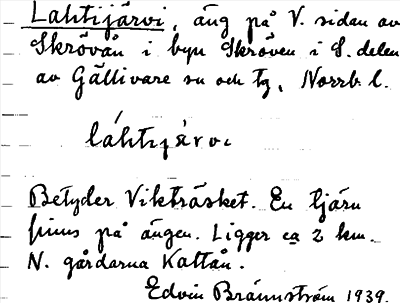 Lahtijärvi, äng på V. sidan av
Skrövån i byn Skröven i S. delen
av Gällivare sn och tg, Norrb. l.
láhtijärvi
Betyder Vikträsket. En tjärn
finns på ängen. Ligger ca 2 km.
N. gårdarna Kattån.
Edvin Brännström 1939.